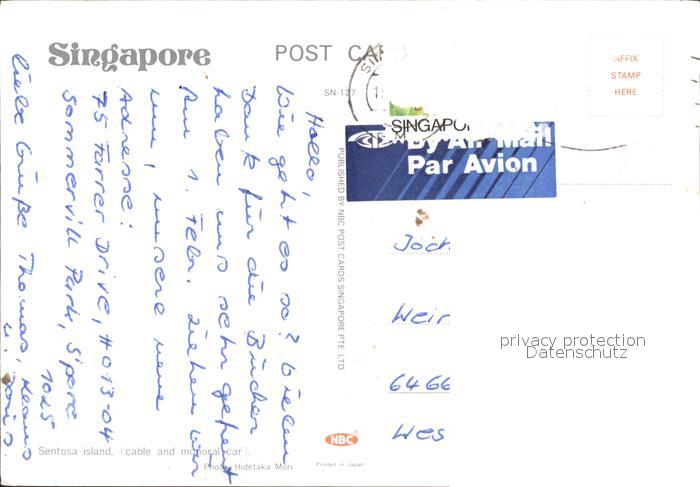 Singapore
POST CARD
SN-127
AFFIX
STAMP
HERE
SINGAPU
By Air Mail
Par Avion
Hallo,
Wie geht es so? Vielen
Dank für die Bücher
haben uns sehr gefreut
Am 1. Febr. ziehen wir
um, unsere neue
Adresse:
75 Farrer Drive, #013-04
Sommervill Park, S'pore
1025
Liebe Grüße Thomas,
u.
PUBLISHED BY NBC POST CARDS SINGAPORE PTE LTD
Joch
Wein
6466
Wes
privacy protection
Datenschutz
NBC
Sentosa island, (cable and monoral car).
Photo: Hidetaka Mori
Printed in Japan